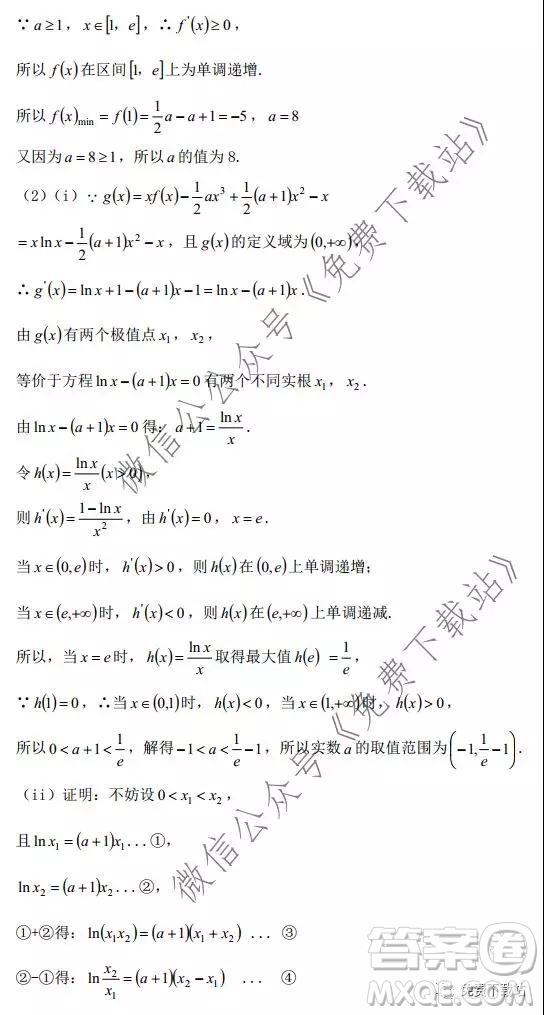 ∵ a≥1，x∈[1，e]，∴ f'(x)≥0，
所以 f(x)在区间[1，e]上为单调递增.
所以 f(x)min = f(1)= 1/2 a − a + 1 = −5，a = 8
又因为 a = 8 ≥ 1，所以 a 的值为 8.
（2）（i）∵ g(x)= xf(x)− 1/2 ax³ + 1/2 (a+1)x² − x
= x ln x − 1/2 (a+1)x² − x，且 g(x)的定义域为(0,+∞)，
∴ g'(x)= ln x + 1 −(a+1)x − 1 = ln x −(a+1)x.
由 g(x)有两个极值点 x₁，x₂，
等价于方程 ln x −(a+1)x = 0 有两个不同实根 x₁，x₂.
由 ln x −(a+1)x = 0 得：a+1 = ln x / x.
令 h(x)= ln x / x (x>0)，
则 h'(x)= (1−ln x) / x²，由 h'(x)= 0，x = e.
当 x∈(0,e)时，h'(x)>0，则 h(x)在(0,e)上单调递增；
当 x∈(e,+∞)时，h'(x)<0，则 h(x)在(e,+∞)上单调递减.
所以，当 x = e 时，h(x)= ln x / x 取得最大值 h(e) = 1/e，
∵ h(1)= 0，∴当 x∈(0,1)时，h(x)<0，当 x∈(1,+∞)时，h(x)>0，
所以 0 < a+1 < 1/e，解得 −1 < a < 1/e − 1，所以实数 a 的取值范围为(−1, 1/e − 1).
（ii）证明：不妨设 0 < x₁ < x₂，
且 ln x₁ =(a+1)x₁ ...①，
ln x₂ =(a+1)x₂ ...②，
①+②得：ln(x₁x₂)=(a+1)(x₁+x₂) ... ③
②−①得：ln x₂/x₁ =(a+1)(x₂−x₁) ... ④
微信公众号《免费下载站》
微信公众号《免费下载站》
答案圈
免费下载站